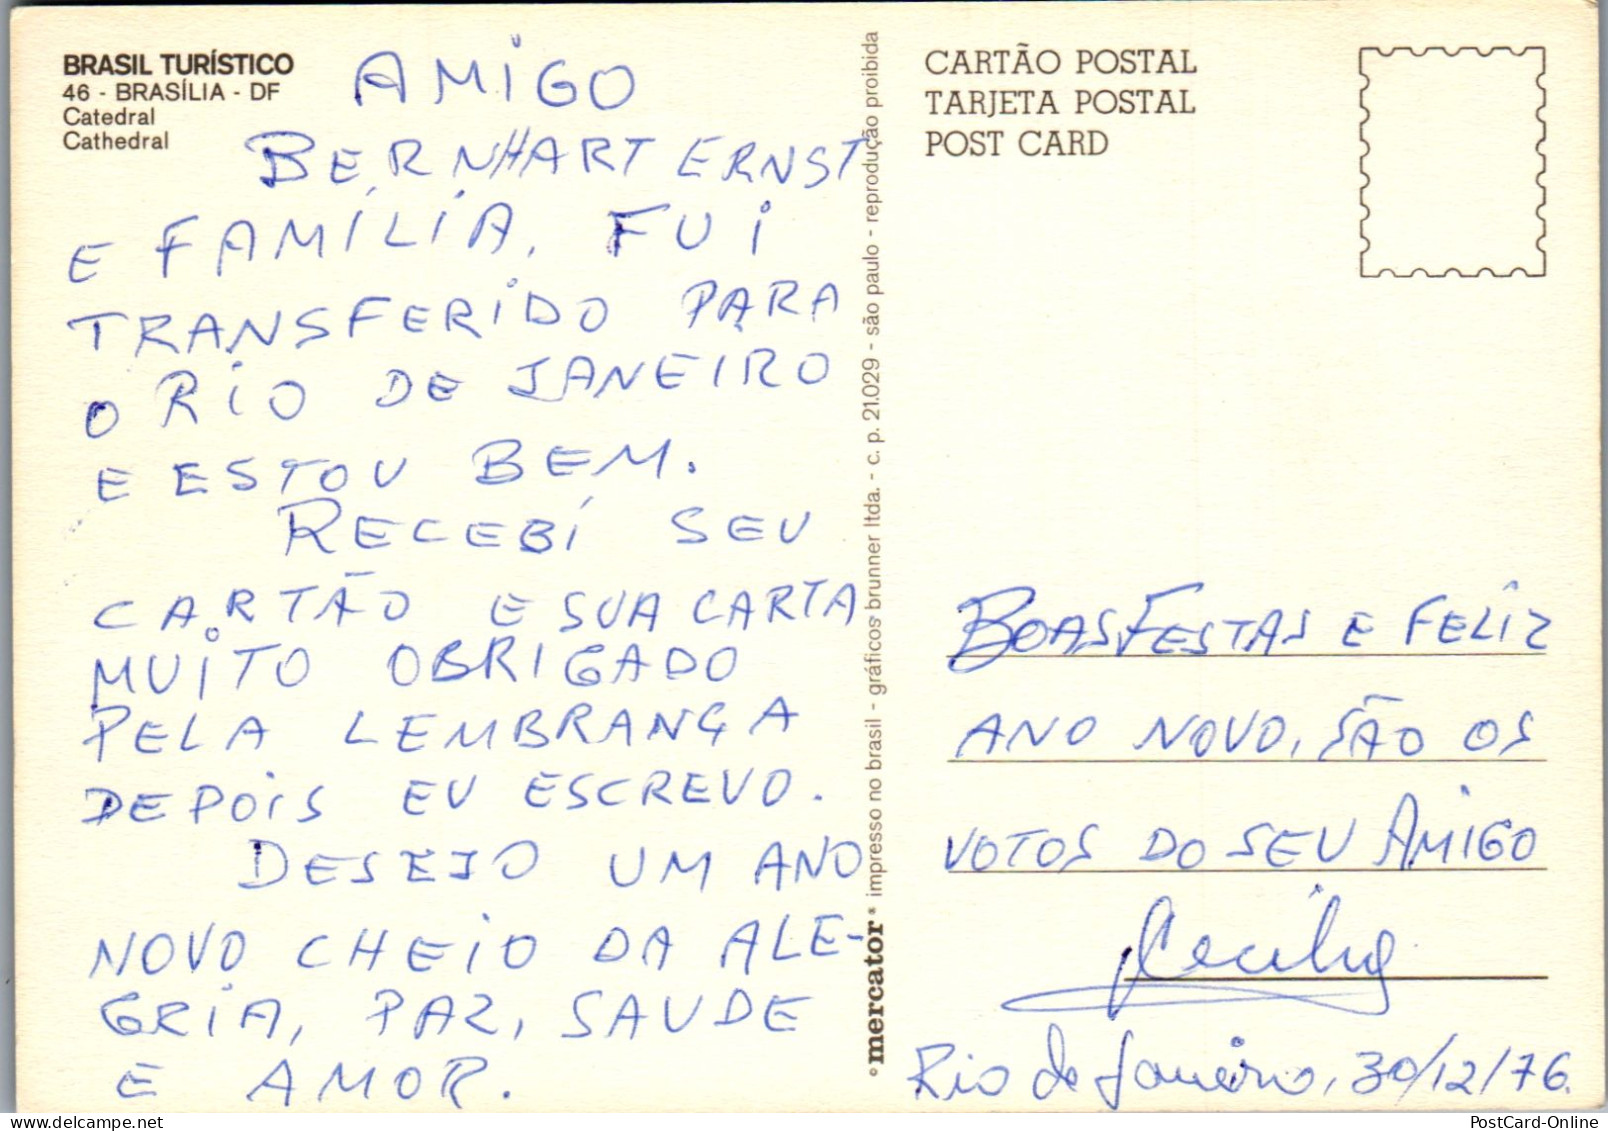 BRASIL TURÍSTICO
46 - BRASÍLIA - DF
Catedral
Cathedral
AMIGO
BERNHART ERNST
E FAMÍLIA, FUI
TRANSFERIDO PARA
O RIO DE JANEIRO
E ESTOU BEM.
RECEBÍ SEU
CARTÃO E SUA CARTA
MUITO OBRIGADO
PELA LEMBRANÇA
DEPOIS EU ESCREVO.
DESEJO UM ANO
NOVO CHEIO DA ALE-
GRIA, PAZ, SAUDE
E AMOR.
mercator impresso no brasil - gráficos brunner ltda. - c. p. 21.029 - são paulo - reprodução proibida
CARTÃO POSTAL
TARJETA POSTAL
POST CARD
BOAS FESTAS E FELIZ
ANO NOVO, SÃO OS
VOTOS DO SEU AMIGO
Rio de Janeiro, 30/12/76.
PostCard-Online